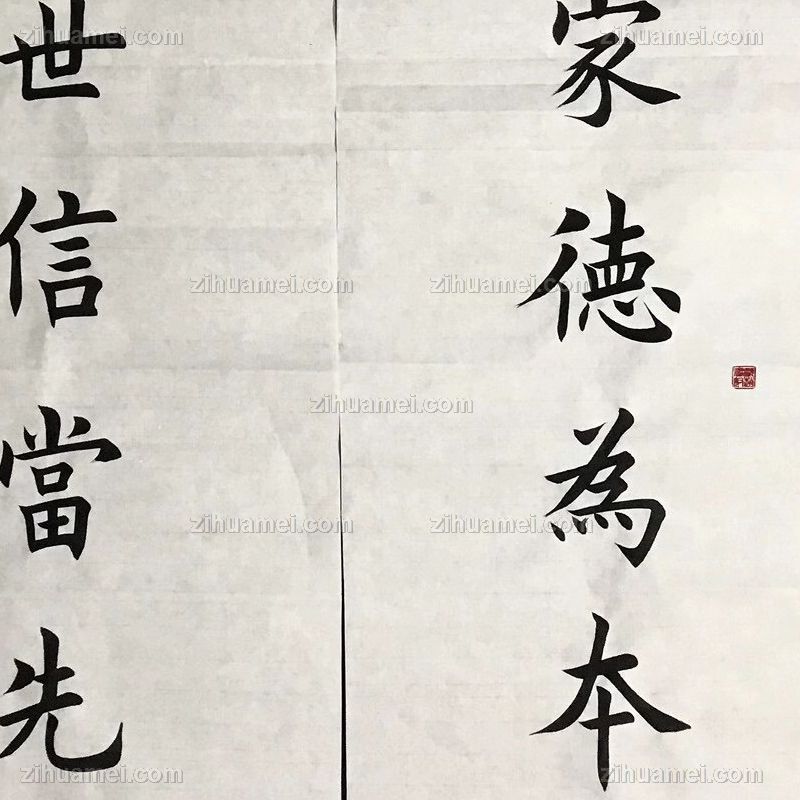 家德為本
世信當先
zihuamei.com
zihuamei.com
zihuamei.com
zihuamei.com
zihuamei.com
zihuamei.com
zihuamei.com
zihuamei.com
zihuamei.com
zihuamei.com